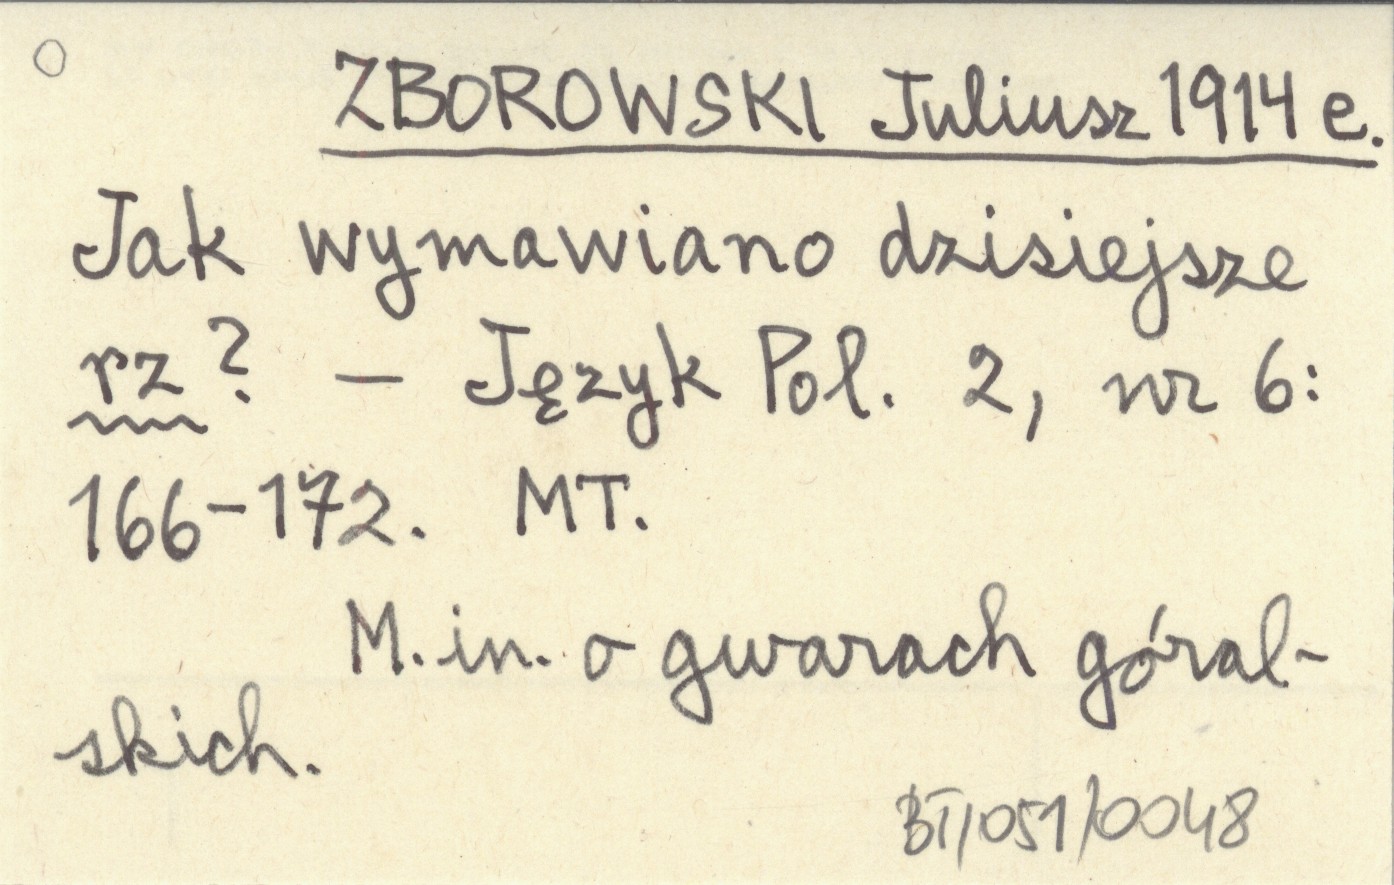 ZBOROWSKI Juliusz 1914 e.
Jak wymawiano dzisiejsze
rz? – Język Pol. 2, nr 6:
166-172. MT.
M. in. o gwarach góral-
skich.
BT/051/0048